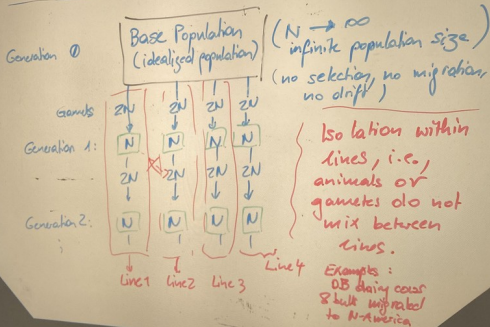 Base Population
(idealized population)
(N → ∞
infinite population size)
(no selection, no migration,
no drift)
Generation 0
Gamets 2N 2N 2N 2N
Generation 1: N N N N
2N 2N 2N 2N
Generation 2: N N N N
Line 1 Line 2 Line 3 Line 4
Isolation within
lines, i.e.,
animals or
gametes do not
mix between
lines.
Examples:
dairy cows
8 bulls migrated
to N-America